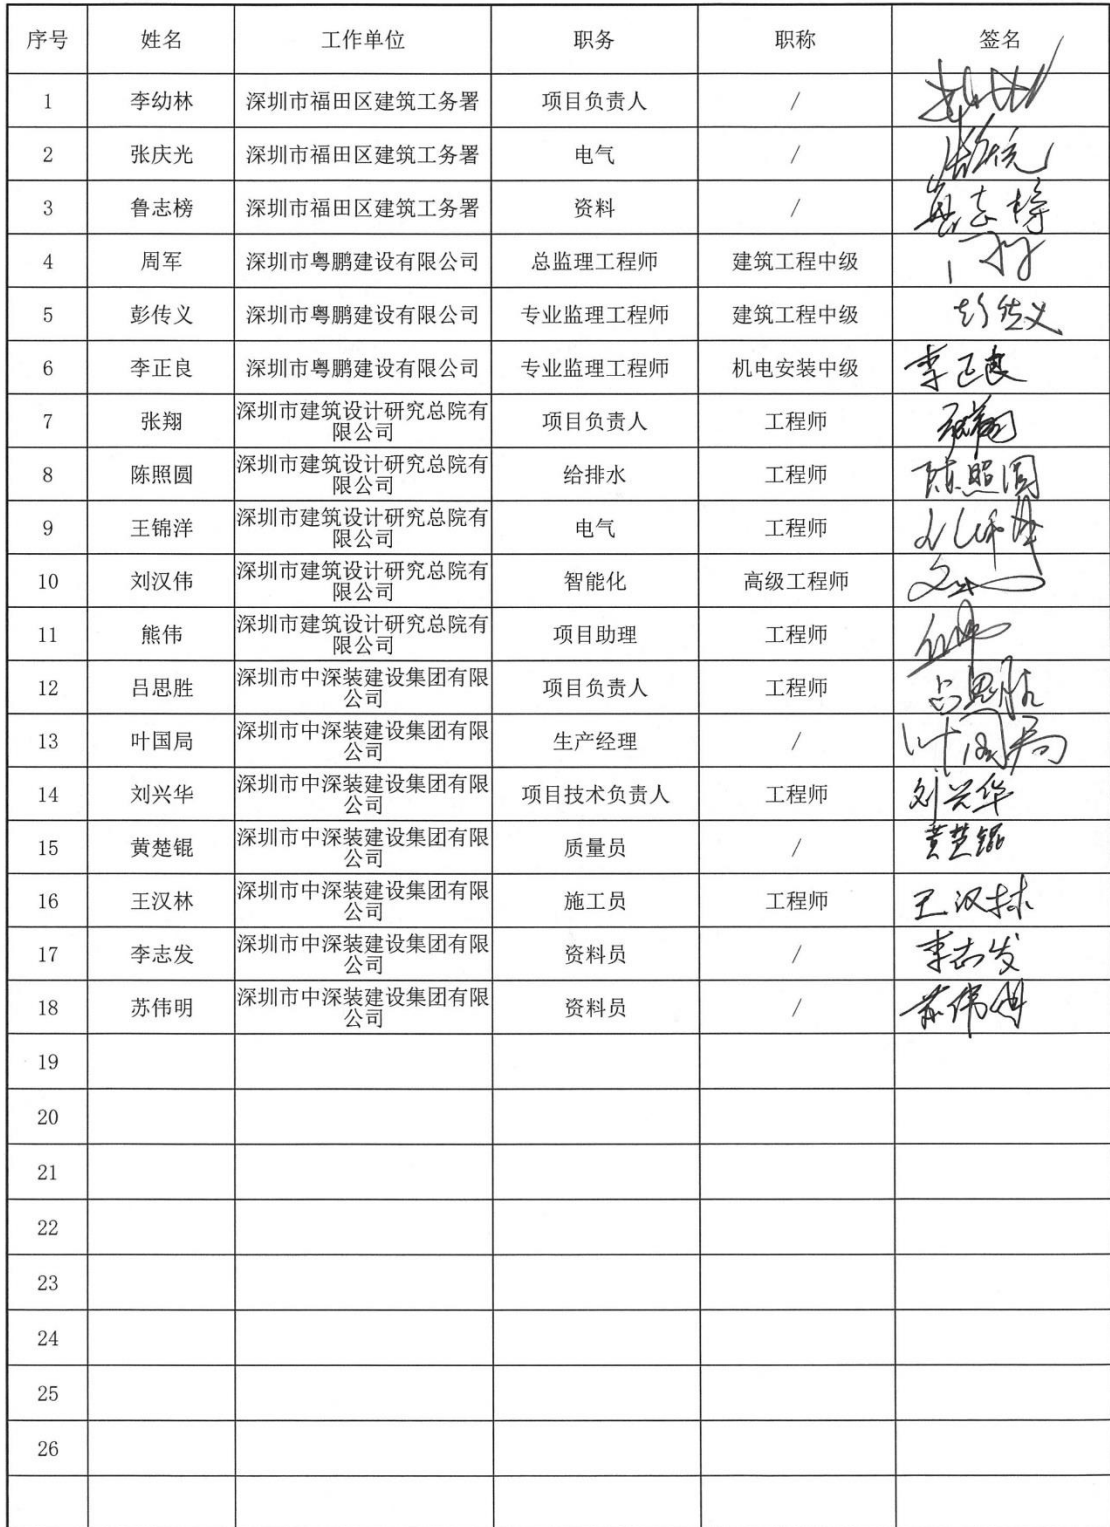 序号 姓名 工作单位 职务 职称 签名
1 李幼林 深圳市福田区建筑工务署 项目负责人 /
2 张庆光 深圳市福田区建筑工务署 电气 /
3 鲁志榜 深圳市福田区建筑工务署 资料 /
4 周军 深圳市粤鹏建设有限公司 总监理工程师 建筑工程中级
5 彭传义 深圳市粤鹏建设有限公司 专业监理工程师 建筑工程中级 彭传义
6 李正良 深圳市粤鹏建设有限公司 专业监理工程师 机电安装中级 李正良
7 张翔 深圳市建筑设计研究总院有限公司 项目负责人 工程师 张翔
8 陈照圆 深圳市建筑设计研究总院有限公司 给排水 工程师 陈照圆
9 王锦洋 深圳市建筑设计研究总院有限公司 电气 工程师
10 刘汉伟 深圳市建筑设计研究总院有限公司 智能化 高级工程师
11 熊伟 深圳市建筑设计研究总院有限公司 项目助理 工程师
12 吕思胜 深圳市中深装建设集团有限公司 项目负责人 工程师 吕思胜
13 叶国局 深圳市中深装建设集团有限公司 生产经理 / 叶国局
14 刘兴华 深圳市中深装建设集团有限公司 项目技术负责人 工程师 刘兴华
15 黄楚锟 深圳市中深装建设集团有限公司 质量员 / 黄楚锟
16 王汉林 深圳市中深装建设集团有限公司 施工员 工程师 王汉林
17 李志发 深圳市中深装建设集团有限公司 资料员 / 李志发
18 苏伟明 深圳市中深装建设集团有限公司 资料员 / 苏伟明
19
20
21
22
23
24
25
26